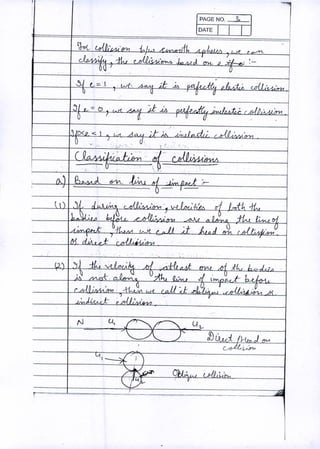 PAGE NO. 5
DATE
For collision b/w smooth spheres, we can
classify, the collisions based on e :-
If e=1, we say it is perfectly elastic collision.
If e=0, we say it is perfectly inelastic collision.
If 0<e<1, we say it is inelastic collision.
Classification of collisions
a) Based on line of impact :-
(1) If during collision, velocities of both the
bodies before collision are along the line of
impact then we call it head on collision
or direct collision.
(2) If the velocity of atleast one of the bodies
is not along the line of impact before
collision, then we call it oblique collision or
indirect collision.
N u₁ u₂
Direct/Head on
collision
u₁
Oblique collision